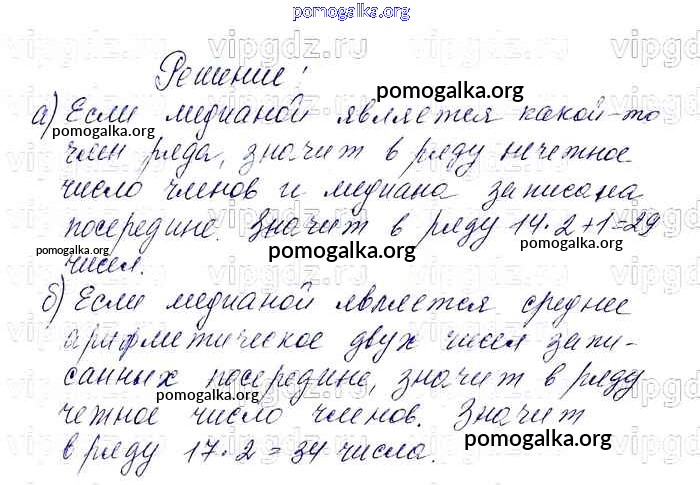 pomogalka.org
vipgdz.ru vipgdz.ru vipgdz.ru
Решение:
pomogalka.org
а) Если медианой является какой-то
pomogalka.org
член ряда, значит в ряду нечетное
число членов и медиана записана
посередине. Значит в ряду 14·2+1=29
pomogalka.org pomogalka.org pomogalka.org
чисел.
б) Если медианой является среднее
арифметическое двух чисел запи-
санных посередине, значит в ряду
pomogalka.org
четное число членов. Значит
pomogalka.org
в ряду 17·2=34 числа.